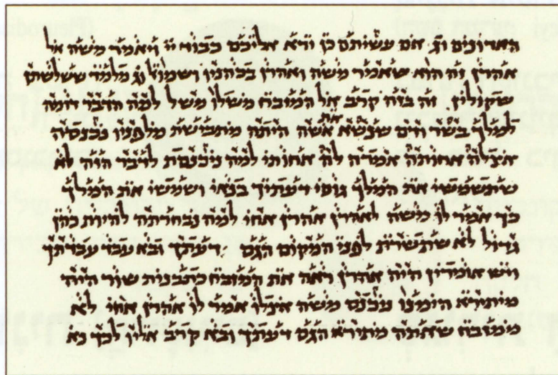 האדונים וג אם עשיתם כן וירא אליכם כבוד יי ויאמר משה אל
אהרן זה הוא שאמר משה ואהרן בכהניו ושמואל וג מלמד ששלשתן
שקולין זה בזה קרב אל המזבח משלו משל למה הדבר דומה
למלך בשר ודם שנשא אשה היתה מתביישת מלפניו נכנסה
אצלה אחותה אמרה לה אחותי למה ניכנסת לדבר הזה לא
שתשמשי את המלך גוסי דעתיך בואי ושמשי את המלך
כך אמר לו משה לאהרן אהרן אחי למה נבחרתה להיות כהן
גדול לא שתשרת לפני המקום הגס דעתך ובא עבוד עבודתך
ויש אומרין היה אהרן רואה את המזבח כתבנית שור היה
מיתירא הימנו נכנס משה אצלו אמר לו אהרן אחי לא
ממזבח שאתה מתירא הגס דעתך ובא קרב אליו לכך נא